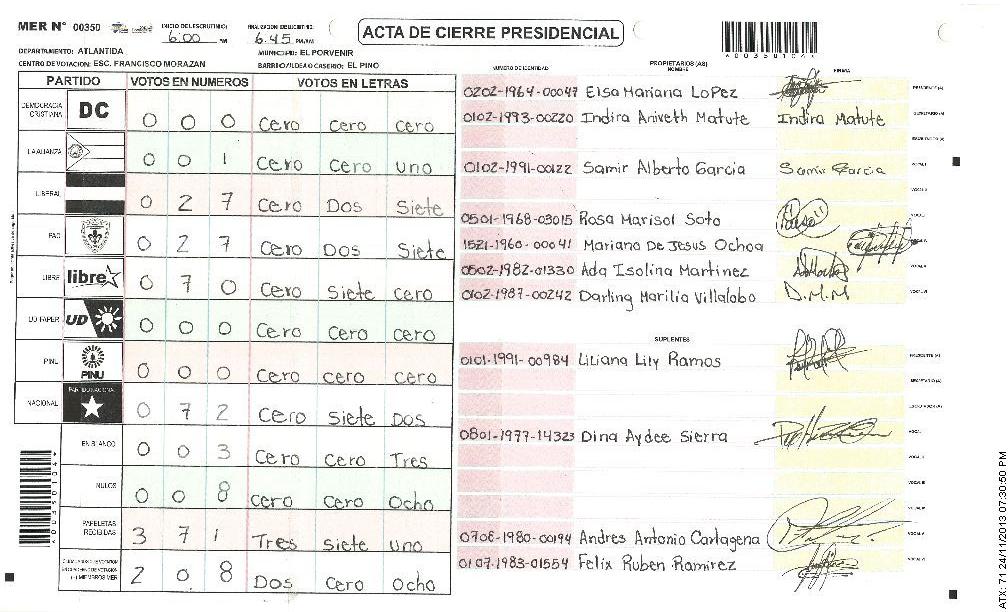 MER N° 00350
INICIO DEL ESCRUTINIO: 6:00 PM
FINALIZACION DEL ESCRUTINIO: 6:45 PM/AM
ACTA DE CIERRE PRESIDENCIAL
DEPARTAMENTO: ATLANTIDA
MUNICIPIO: EL PORVENIR
CENTRO DE VOTACION: ESC. FRANCISCO MORAZAN
BARRIO/ALDEA O CASERIO: EL PINO
PARTIDO VOTOS EN NUMEROS VOTOS EN LETRAS
DEMOCRACIA CRISTIANA DC 0 0 0 Cero Cero Cero
LA ALIANZA 0 0 1 Cero Cero Uno
LIBERAL 0 2 7 Cero Dos Siete
PAC 0 2 7 Cero Dos Siete
LIBRE libre 0 7 0 Cero Siete Cero
UD FAPER UD 0 0 0 Cero Cero Cero
PINU PINU 0 0 0 Cero Cero Cero
NACIONAL PARTIDO NACIONAL 0 7 2 Cero Siete Dos
EN BLANCO 0 0 3 Cero Cero Tres
NULOS 0 0 8 Cero Cero Ocho
PAPELETAS RECIBIDAS 3 7 1 Tres Siete Uno
2 0 8 Dos Cero Ocho
NUMERO DE IDENTIDAD PROPIETARIOS (AS) NOMBRE FIRMA
0202-1964-00047 Elsa Mariana Lopez PRESIDENTE (A)
0102-1993-00220 Indira Ariveth Matute Indira Matute SECRETARIO (A)
ESCRUTADOR (A)
0102-1991-00122 Samir Alberto Garcia Samir Garcia VOCAL I
VOCAL II
0501-1968-03015 Rosa Marisol Soto
1521-1960-00041 Mariano De Jesus Ochoa
0502-1982-01330 Ada Isolina Martinez
0102-1987-00242 Darling Marilia Villalobo D.M.M
SUPLENTES
0101-1991-00984 Liliana Lily Ramos PRESIDENTE (A)
SECRETARIO (A)
ESCRUTADOR (A)
0801-1977-14323 Dina Aydee Sierra VOCAL I
VOCAL II
VOCAL III
VOCAL IV
0706-1980-00194 Andres Antonio Cartagena VOCAL V
0107-1983-01554 Felix Ruben Ramirez VOCAL VI
ATX: 71 24/11/2013 07:30:50 PM